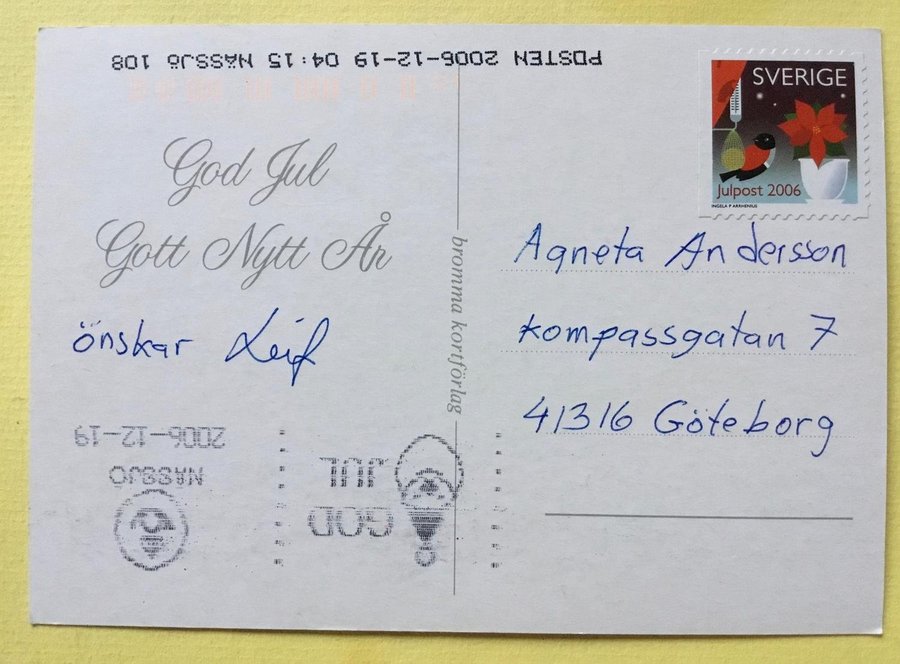 POSTEN 2006-12-19 04:15 NÄSSJÖ 108
God Jul
Gott Nytt År
önskar Leif
2006-12-19
NÄSSJÖ
GOD
JUL
bromma kortförlag
SVERIGE
Julpost 2006
INGELA P ARRHENIUS
Agneta Andersson
Kompassgatan 7
41316 Göteborg